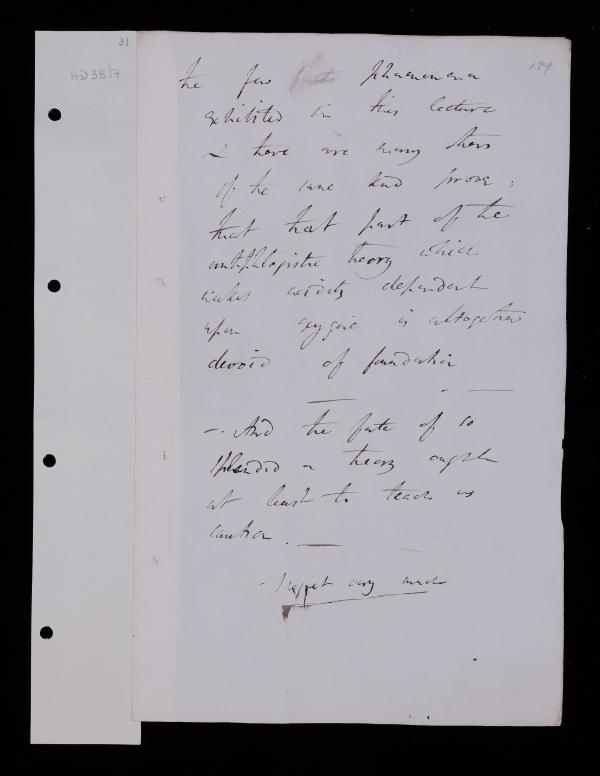 31
HD38/7
189
the few facts phaenomena
exhibited in this lecture
& there are many others
of the same kind prove;
that that part of the
antiphlogistic theory which
makes acidity dependent
upon oxygene is altogether
devoid of foundation
—. And the fate of so
splendid a theory ought
at least to teach us
caution. —
- I regret very much